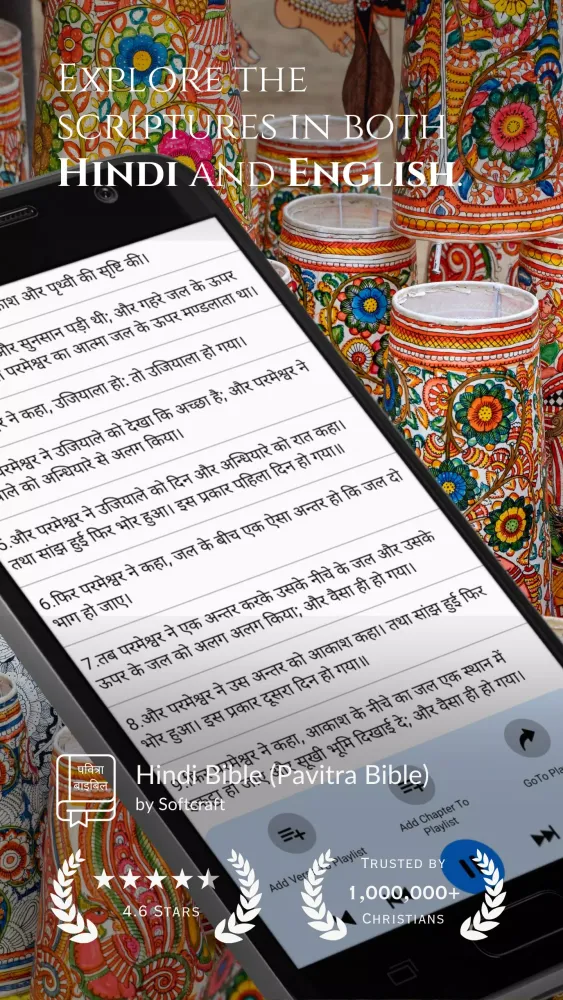 EXPLORE THE
SCRIPTURES IN BOTH
HINDI AND ENGLISH.
और पृथ्वी की सृष्टि की।
और सुनसान पड़ी थी; और गहरे जल के ऊपर
परमेश्वर का आत्मा जल के ऊपर मण्डलाता था।
ने कहा, उजियाला हो: तो उजियाला हो गया।
ने उजियाले को देखा कि अच्छा है; और परमेश्वर ने
को अन्धियारे से अलग किया।
5.और परमेश्वर ने उजियाले को दिन और अन्धियारे को रात कहा।
तथा सांझ हुई फिर भोर हुआ। इस प्रकार पहिला दिन हो गया॥
6.फिर परमेश्वर ने कहा, जल के बीच एक ऐसा अन्तर हो कि जल दो
भाग हो जाए।
7.तब परमेश्वर ने एक अन्तर करके उसके नीचे के जल और उसके
ऊपर के जल को अलग अलग किया; और वैसा ही हो गया।
8.और परमेश्वर ने उस अन्तर को आकाश कहा। तथा सांझ हुई फिर
भोर हुआ। इस प्रकार दूसरा दिन हो गया॥
ने कहा, आकाश के नीचे का जल एक स्थान में
हो जाए और सूखी भूमि दिखाई दे; और वैसा ही हो गया।
पवित्रा
बाइबिल
Hindi Bible (Pavitra Bible)
by Softcraft
GoTo
Add Chapter To
Playlist
Add Playlist
4.6 STARS
TRUSTED BY
1,000,000+
CHRISTIANS